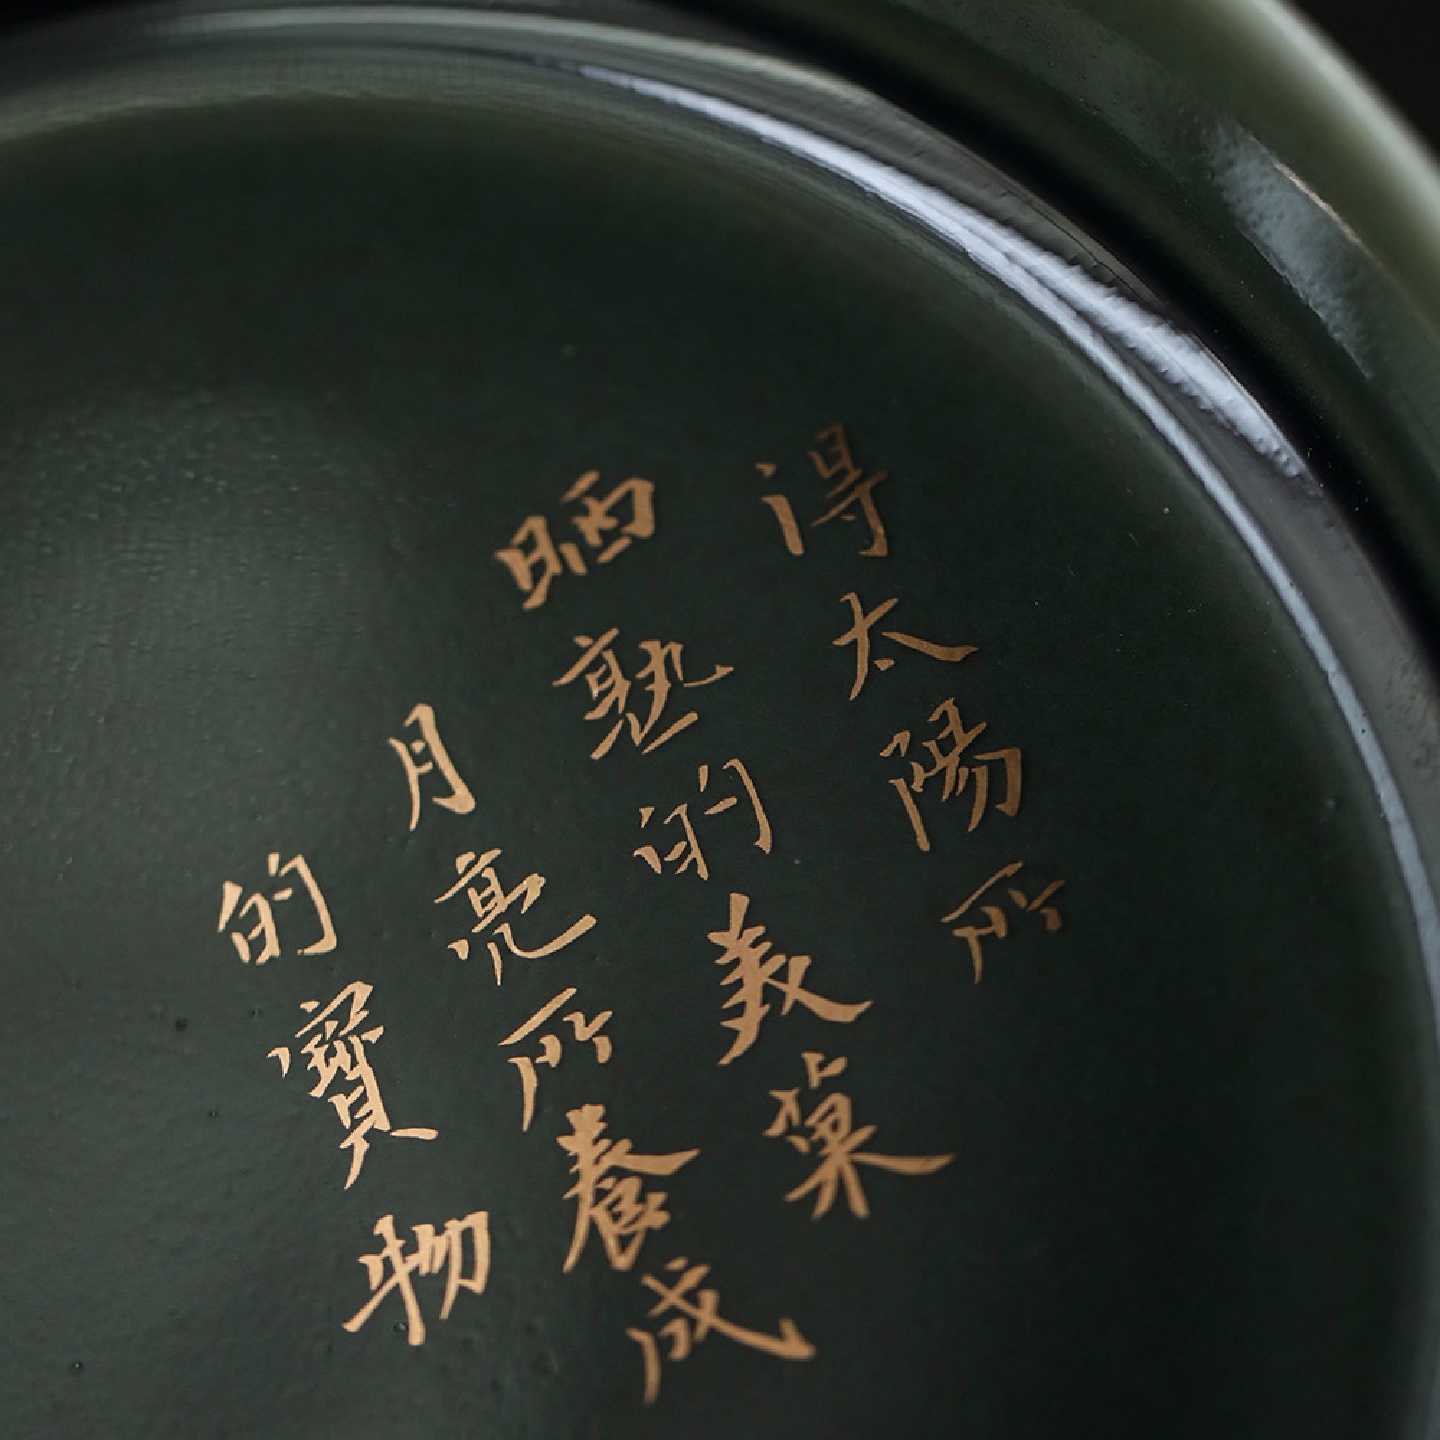 得太陽所
晒熟的美菓
月亮所養成
的寶物